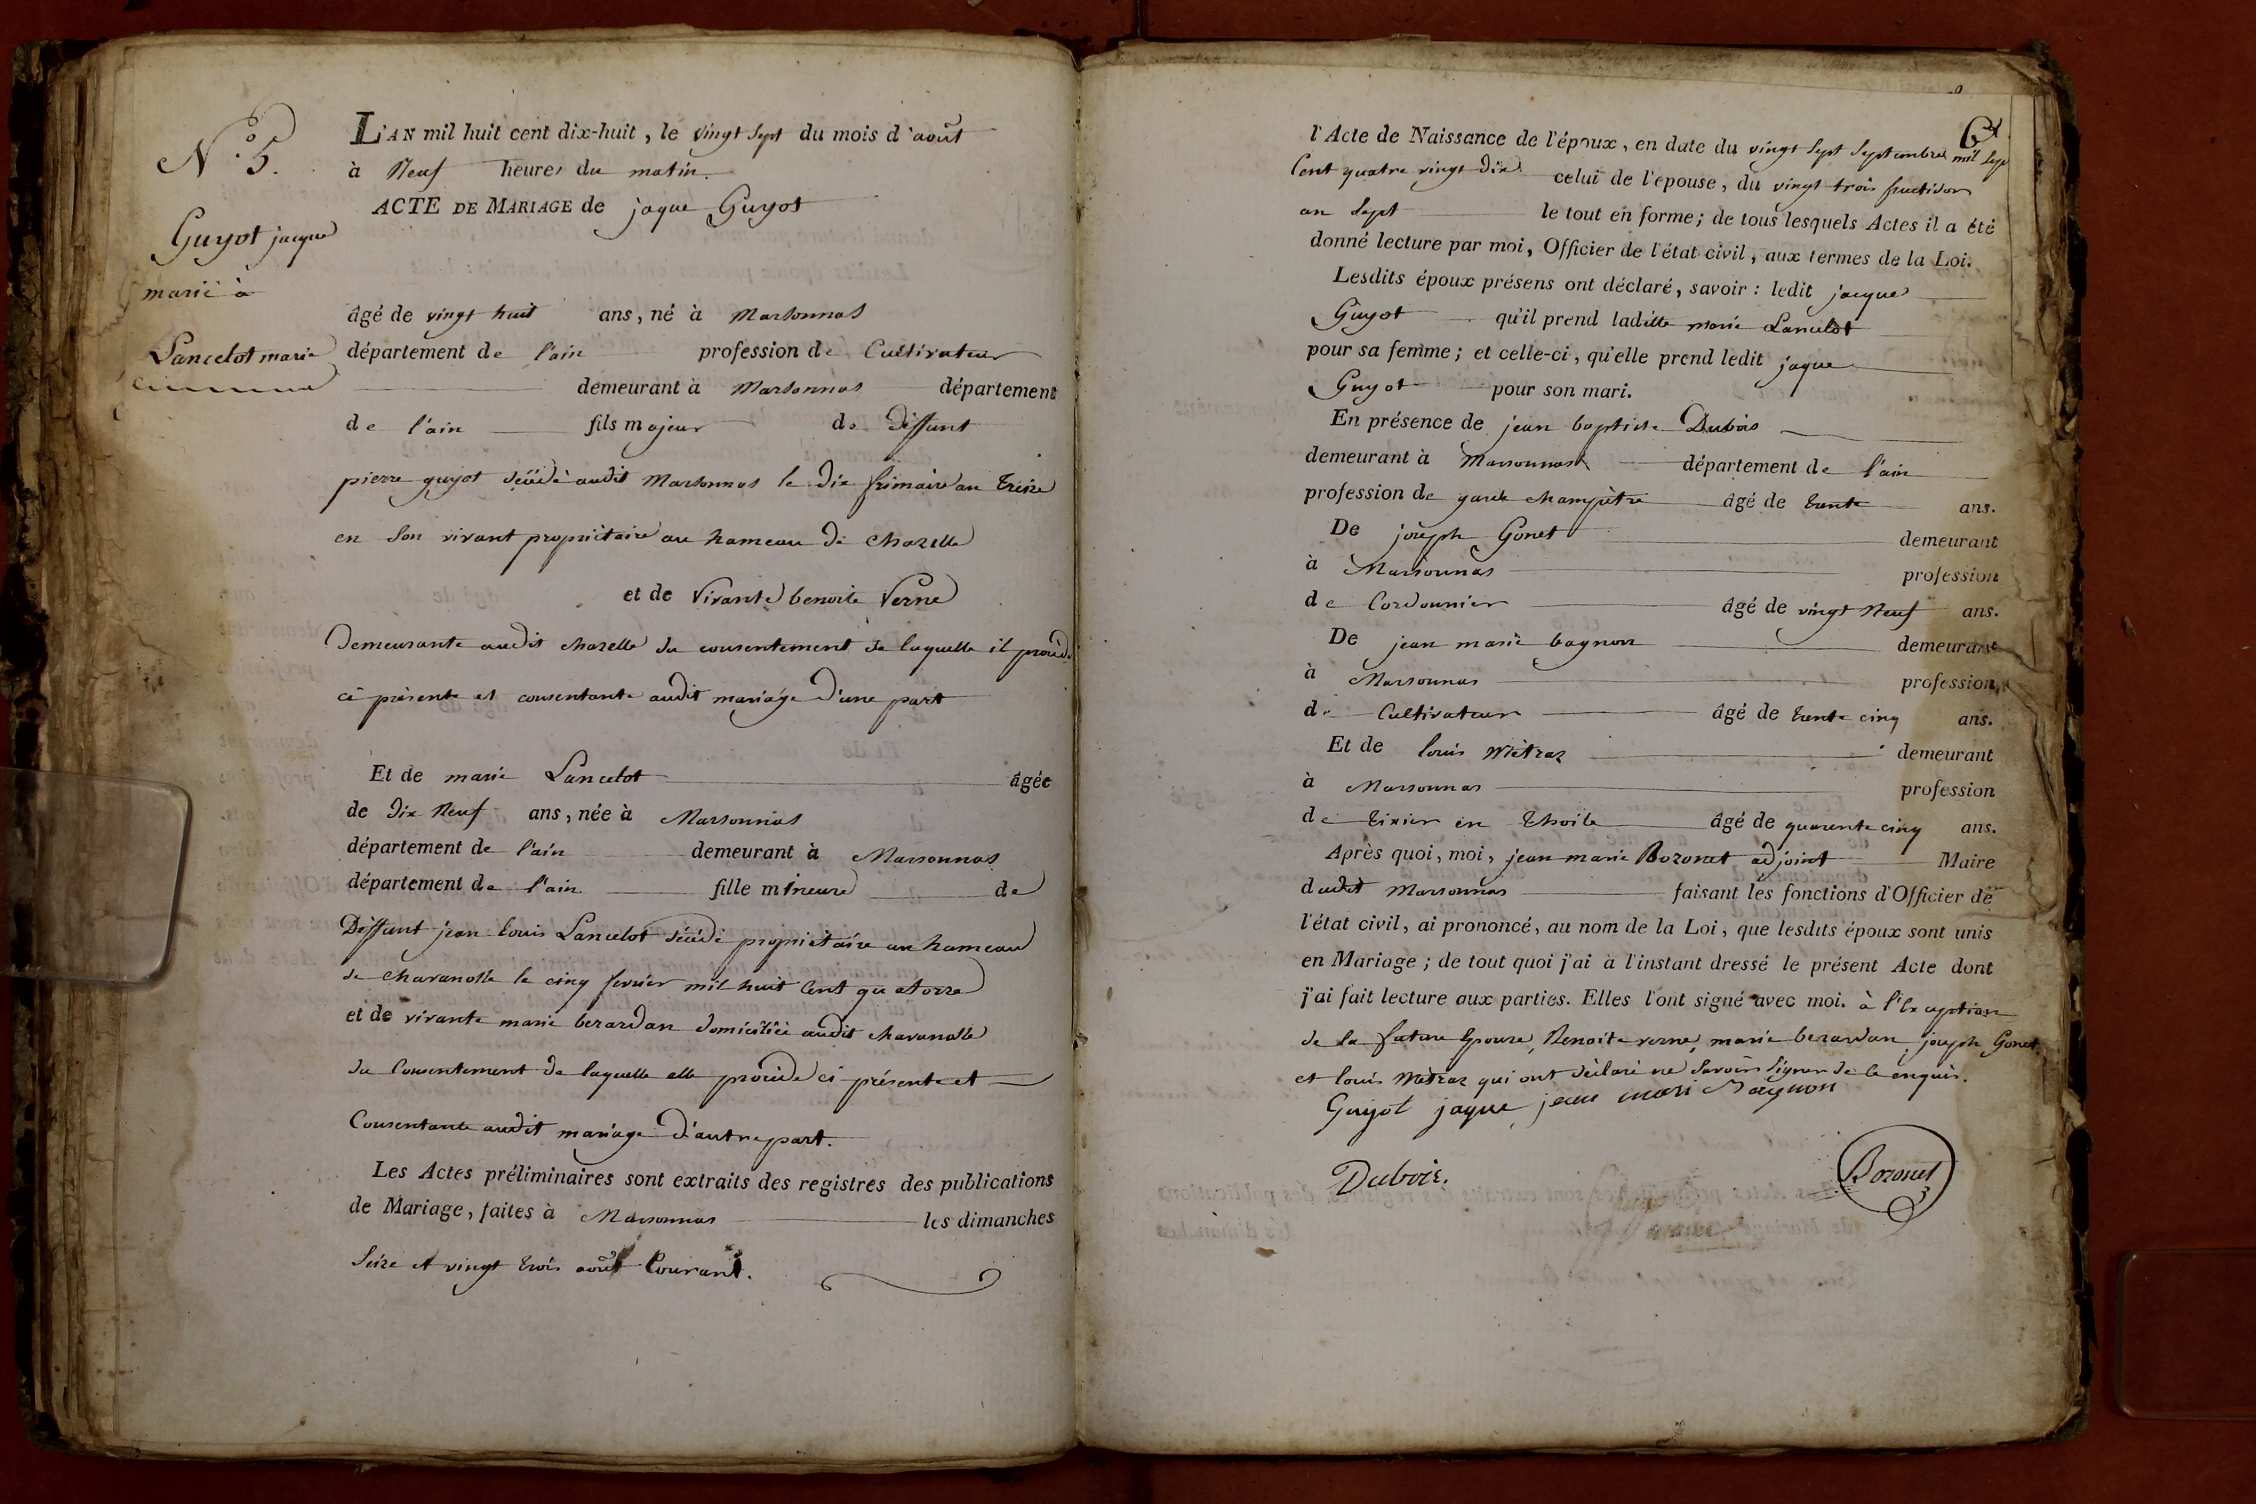 N.° 5.
Guyot jacque
marié à
Lancelot marie
L'AN mil huit cent dix-huit, le vingt sept du mois d'août
à Neuf heures du matin.
ACTE DE MARIAGE de jaque Guyot
âgé de vingt huit ans, né à Marsonnas
département de l'ain profession de Cultivateur
demeurant à Marsonnas département
de l'ain fils majeur de deffunt
pierre guyot décédé audit Marsonnas le dix frimaire an treize
en son vivant propriétaire au hameau de chazelle
et de vivante benoite Verne
demeurante audit chazelle du consentement de laquelle il procède
ci présente et consentante audit mariage d'une part
Et de marie Lancelot âgée
de dix Neuf ans, née à Marsonnas
département de l'ain demeurant à Marsonnas
département de l'ain fille mineure de
Deffunt jean Louis Lancelot décédé propriétaire au hameau
de chavanolle le cinq fevrier mil huit Cent quatorze
et de vivante marie berardan domiciliée audit chavanolle
du Consentement de laquelle elle procède ci présente et
Consentante audit mariage d'autre part.
Les Actes préliminaires sont extraits des registres des publications
de Mariage, faites à Marsonnas les dimanches
Seize et vingt trois août Courant.
6
l'Acte de Naissance de l'époux, en date du vingt sept septembre mil sep
Cent quatre vingt dix celui de l'épouse, du vingt trois fructidor
an sept le tout en forme; de tous lesquels Actes il a été
donné lecture par moi, Officier de l'état civil, aux termes de la Loi.
Lesdits époux présens ont déclaré, savoir: ledit jacque
Guyot qu'il prend ladite marie Lancelot
pour sa femme; et celle-ci, qu'elle prend ledit jaque
Guyot pour son mari.
En présence de jean baptiste Dubois
demeurant à Marsonnas département de l'ain
profession de garde champètre âgé de trente ans.
De joseph Gonet demeurant
à Marsonnas profession
de Cordonnier âgé de vingt Neuf ans.
De jean marie bagnon demeurant
à Marsonnas profession
de Cultivateur âgé de trente cinq ans.
Et de louis Mètraz demeurant
à Marsonnas profession
de tixier en thoile âgé de quarente cinq ans.
Après quoi, moi, jean marie Bozonet adjoint Maire
dudit Marsonnas faisant les fonctions d'Officier de
l'état civil, ai prononcé, au nom de la Loi, que lesdits époux sont unis
en Mariage; de tout quoi j'ai à l'instant dressé le présent Acte dont
j'ai fait lecture aux parties. Elles l'ont signé avec moi. à l'Exception
de la future Epouse, Benoite verne, marie berardan, joseph Gonet
et louis Mètraz qui ont déclaré ne Savoir Signer de ce enquis.
Guyot jaque jean mari Bagnon
Dubois.
Bozonet